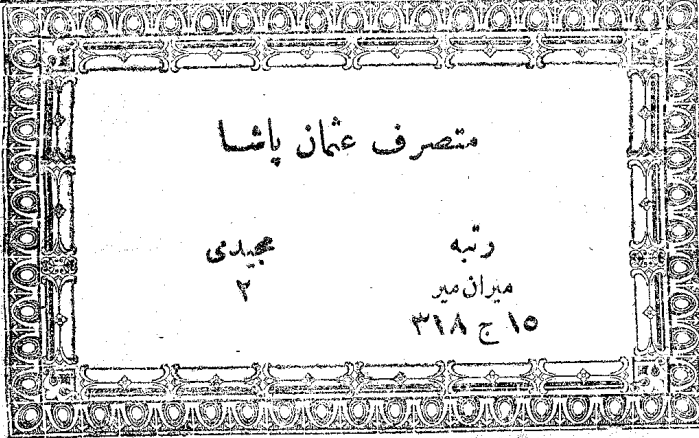 متصرف عثمان پاشا
رتبه
ميران مير
١٥ ج ٣١٨
مجيدى
٢